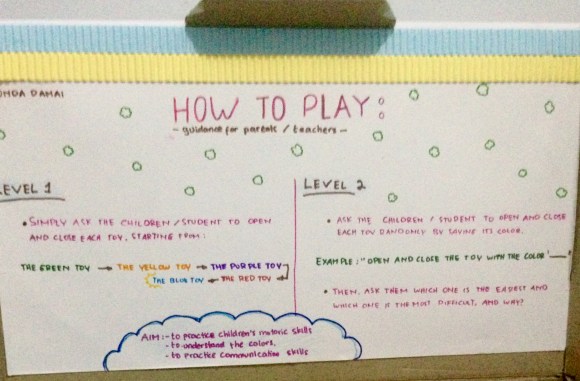 DAMAI
HOW TO PLAY:
- guidance for parents / teachers -
LEVEL 1
• SIMPLY ASK THE CHILDREN / STUDENT TO OPEN
AND CLOSE EACH TOY, STARTING FROM:
THE GREEN TOY → THE YELLOW TOY → THE PURPLE TOY
THE BLUE TOY ← THE RED TOY
AIM: - to practice children's motoric skills
- to understand the colors,
- to practice communication skills
LEVEL 2
• ASK THE CHILDREN / STUDENT TO OPEN AND CLOSE
EACH TOY RANDOMLY BY SAYING ITS COLOR.
EXAMPLE: "OPEN AND CLOSE THE TOY WITH THE COLOR ___"
• THEN, ASK THEM WHICH ONE IS THE EASIEST AND
WHICH ONE IS THE MOST DIFFICULT, AND WHY?